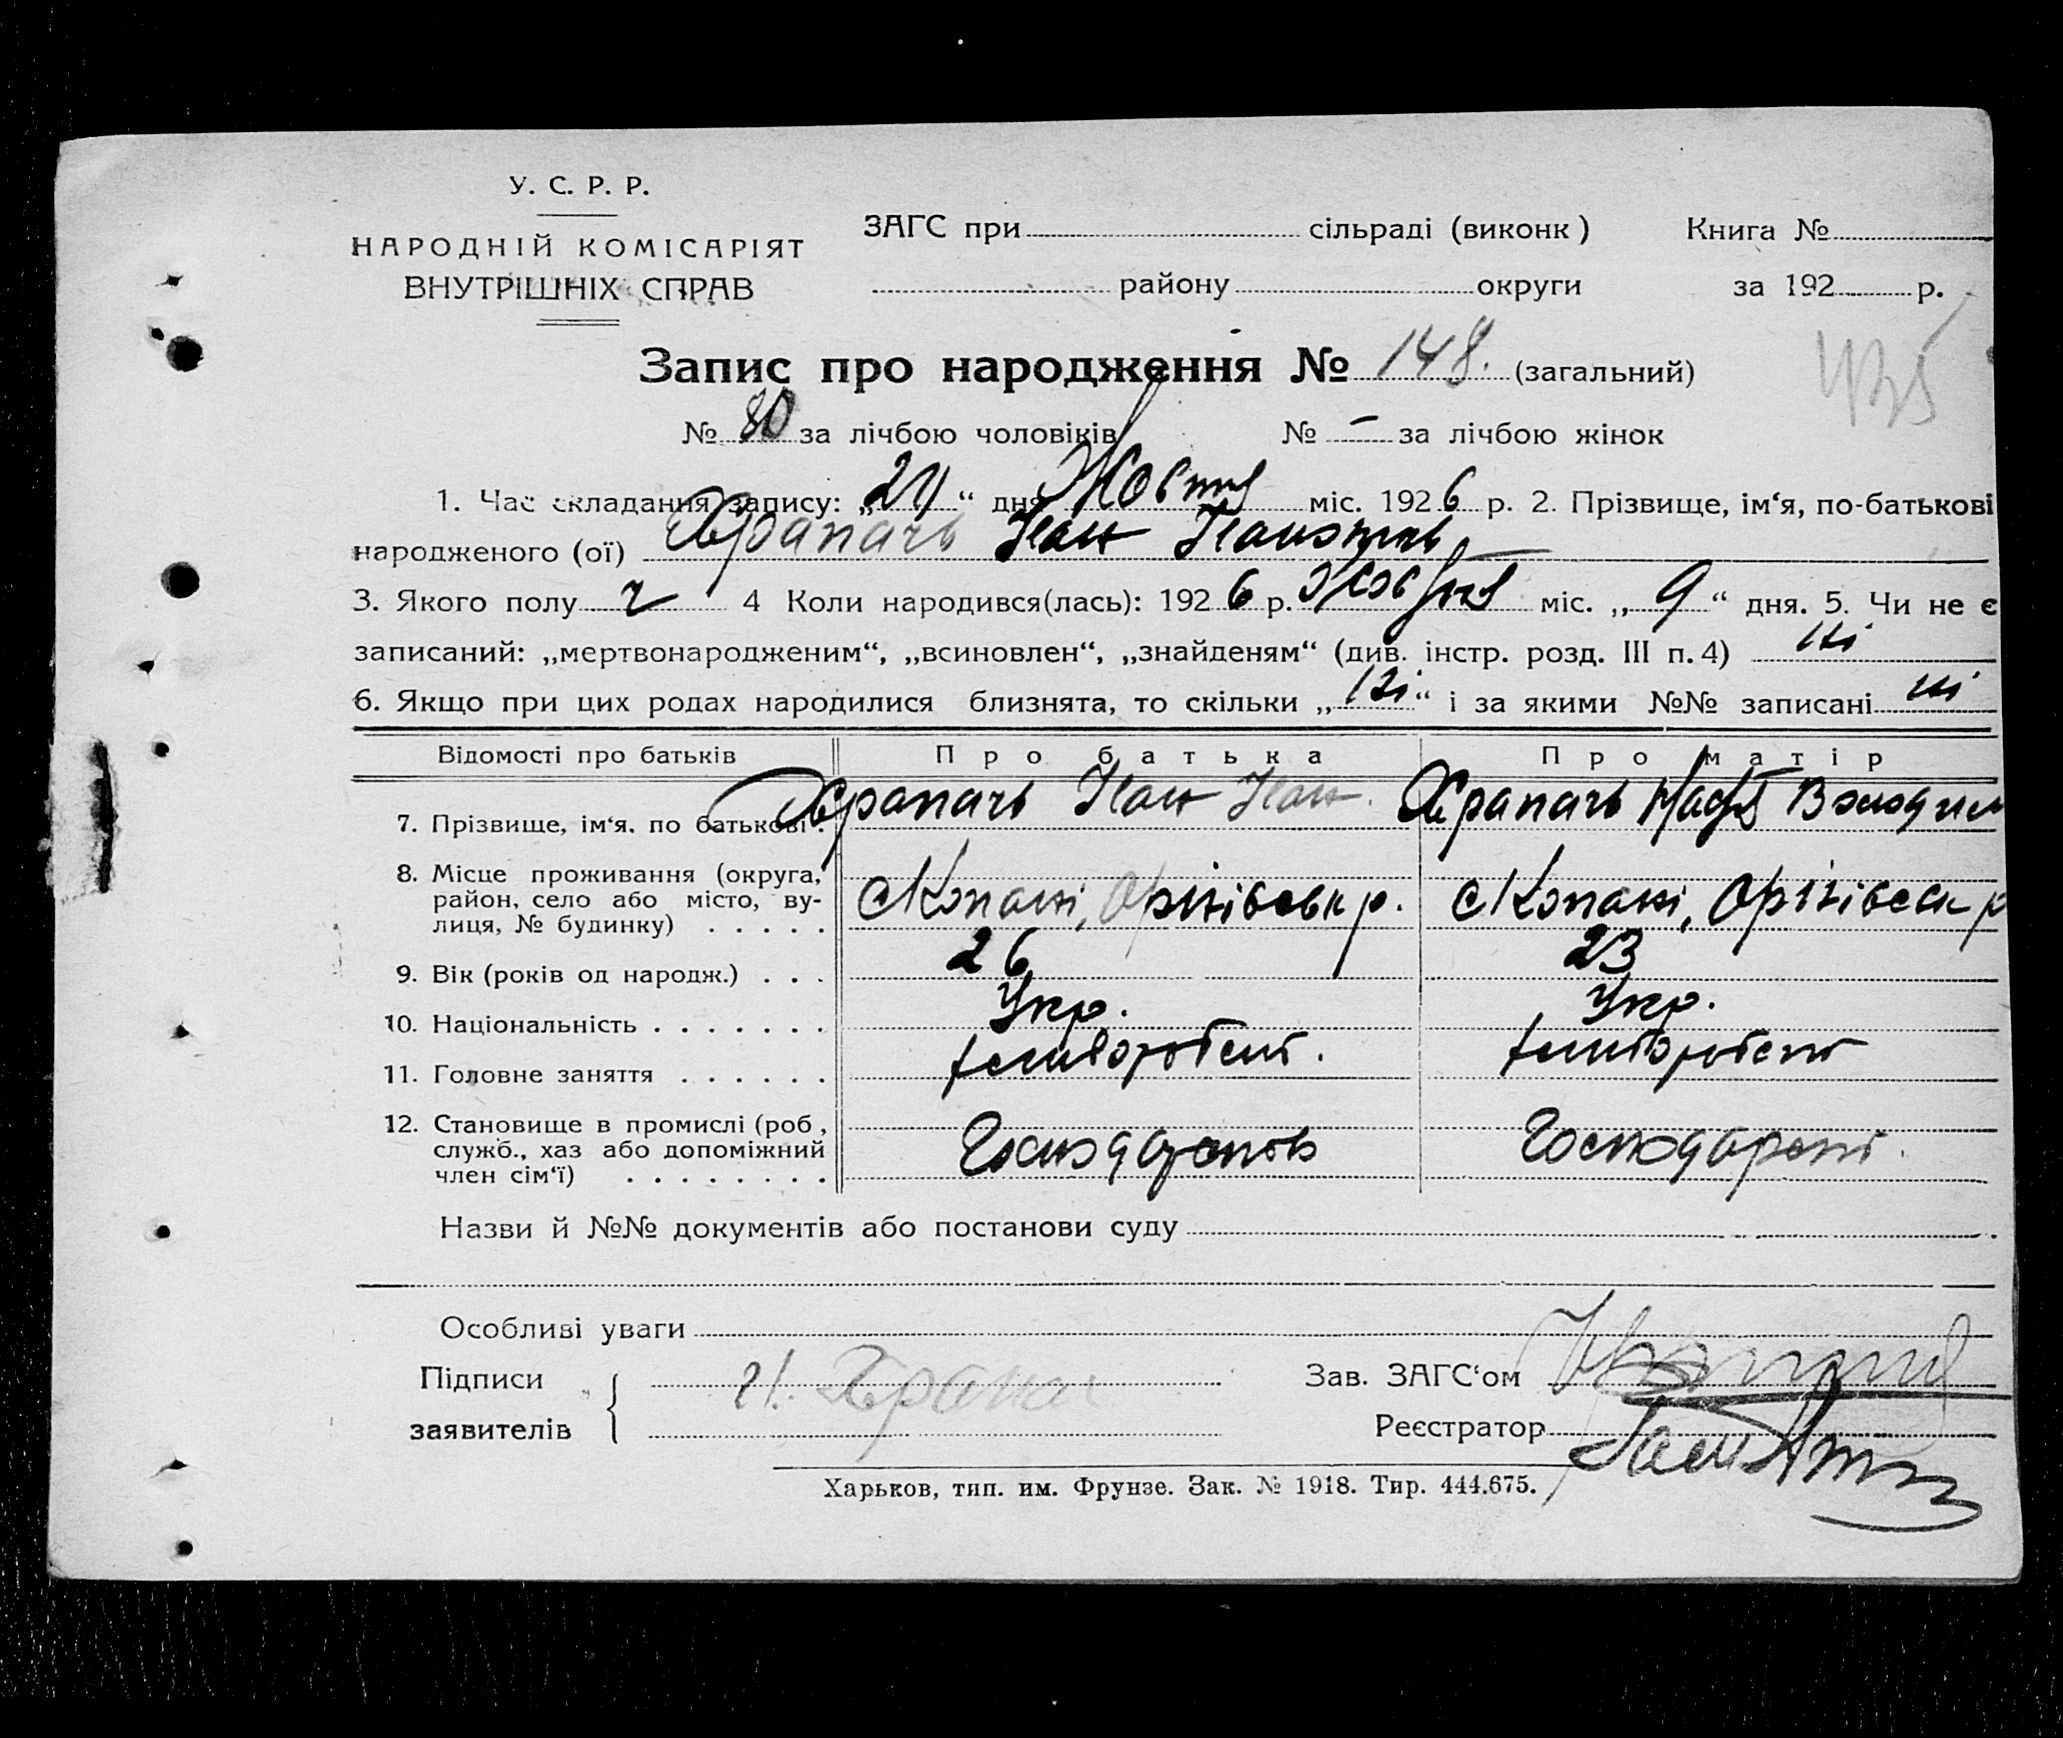 У. С. Р. Р.
НАРОДНІЙ КОМІСАРІЯТ
ВНУТРІШНІХ СПРАВ
ЗАГС при сільраді (виконк) Книга №
району округи за 192 р.
Запис про народження № 148. (загальний)
№ 80 за лічбою чоловіків № – за лічбою жінок
1. Час складання запису: „24“ дня Жовтня міс. 1926 р. 2. Прізвище, ім‘я, по-батькові
народженого (ої) Храпачь Іван Іванович
3. Якого полу ч 4 Коли народився(лась): 1926 р. Жовтня міс. „9“ дня. 5. Чи не є
записаний: „мертвонародженим“, „всиновлен“, „знайденям“ (див. інстр. розд. III п. 4) ні
6. Якщо при цих родах народилися близнята, то скільки „ні“ і за якими №№ записані ні
Відомості про батьків Про батька Про матір
7. Прізвище, ім‘я. по батькові. Храпачь Іван Іван. Храпачь Надія Володим
8. Місце проживання (округа, район, село або місто, вулиця, № будинку) . . . . . с Копані, Оріхівськ р. с Копані, Оріхівськ р
9. Вік (років од народж.) . . . 26 23
10. Національність . . . . . . . Укр. Укр.
11. Головне заняття . . . . . . хлибороб
12. Становище в промислі (роб, служб., хаз або допоміжний член сім‘ї) . . . . . . . .
Назви й №№ документів або постанови суду
Особливі уваги
Підписи
заявителів
И. Храпач
Зав. ЗАГС‘ом
Реєстратор
Харьков, тип. им. Фрунзе. Зак. № 1918. Тир. 444.675.